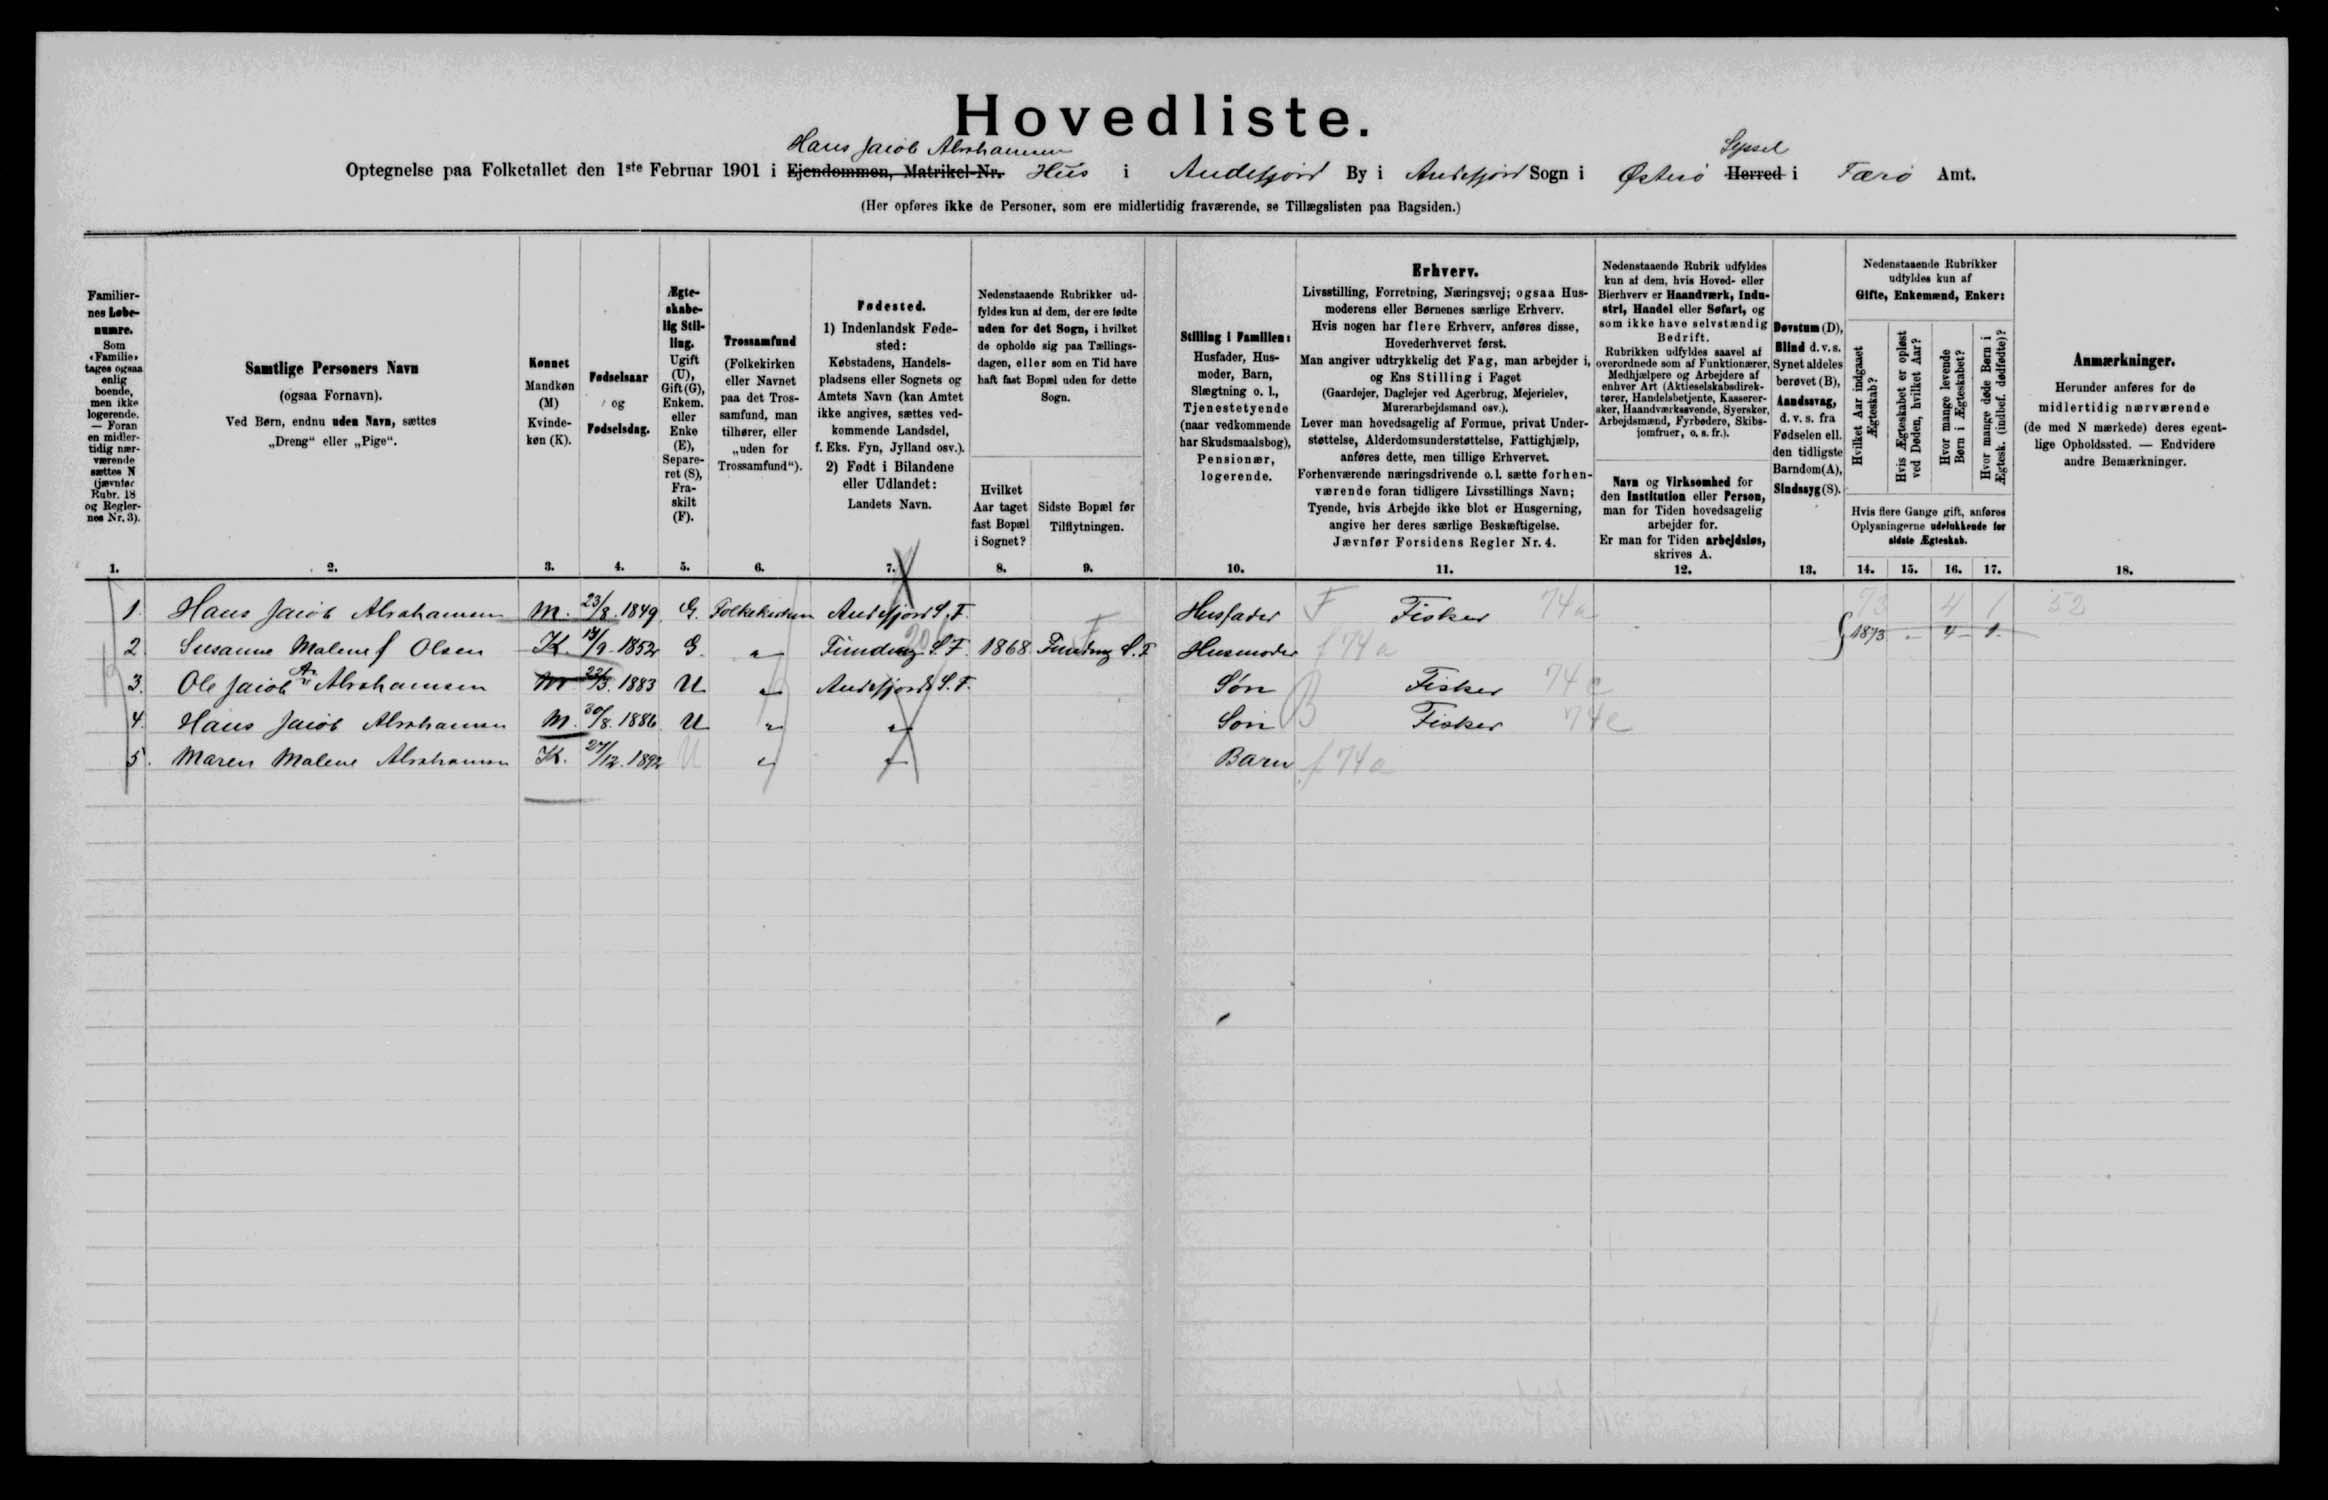 Hovedliste.
Hans Jacob Abrahamsen
Syssel
Optegnelse paa Folketallet den 1ste Februar 1901 i Ejendommen, Matrikel-Nr. Hus i Andefjord By i Andefjord Sogn i Østerø Herred i Færø Amt.
(Her opføres ikke de Personer, som ere midlertidig fraværende, se Tillægslisten paa Bagsiden.)
Familiernes Løbenumre.
Som «Familie» tages ogsaa enlig boende, men ikke logerende. — Foran en midlertidig nærværende sættes N (jævnfør Rubr. 18 og Reglernes Nr. 3).
Samtlige Personers Navn
(ogsaa Fornavn).
Ved Børn, endnu uden Navn, sættes
„Dreng“ eller „Pige“.
Kønnet
Mandkøn
(M)
Kvinde-
køn (K).
Fødselsaar
og
Fødselsdag.
Ægte-
skabe-
lig Stil-
ling.
Ugift
(U),
Gift (G),
Enkem.
eller
Enke
(E),
Separe-
ret (S),
Fra-
skilt
(F).
Trossamfund
(Folkekirken
eller Navnet
paa det Tros-
samfund, man
tilhører, eller
„uden for
Trossamfund“).
Fødested.
1) Indenlandsk Føde-
sted:
Købstadens, Handels-
pladsens eller Sognets og
Amtets Navn (kan Amtet
ikke angives, sættes ved-
kommende Landsdel,
f. Eks. Fyn, Jylland osv.).
2) Født i Bilandene
eller Udlandet:
Landets Navn.
Nedenstaaende Rubrikker ud-
fyldes kun af dem, der ere fødte
uden for det Sogn, i hvilket
de opholde sig paa Tællings-
dagen, eller som en Tid have
haft fast Bopæl uden for dette
Sogn.
Hvilket
Aar taget
fast Bopæl
i Sognet?
Sidste Bopæl før
Tilflytningen.
Stilling i Familien:
Husfader, Hus-
moder, Barn,
Slægtning o. l.,
Tjenestetyende
(naar vedkommende
har Skudsmaalsbog),
Pensionær,
logerende.
Erhverv.
Livsstilling, Forretning, Næringsvej; ogsaa Hus-
moderens eller Børnenes særlige Erhverv.
Hvis nogen har flere Erhverv, anføres disse,
Hovederhvervet først.
Man angiver udtrykkelig det Fag, man arbejder i,
og Ens Stilling i Faget
(Gaardejer, Daglejer ved Agerbrug, Mejerielev,
Murerarbejdsmand osv.).
Lever man hovedsagelig af Formue, privat Under-
støttelse, Alderdomsunderstøttelse, Fattighjælp,
anføres dette, men tillige Erhvervet.
Forhenværende næringsdrivende o.l. sætte forhen-
værende foran tidligere Livsstillings Navn;
Tyende, hvis Arbejde ikke blot er Husgerning,
angive her deres særlige Beskæftigelse.
Jævnfør Forsidens Regler Nr. 4.
Nedenstaaende Rubrik udfyldes
kun af dem, hvis Hoved- eller
Bierhverv er Haandværk, Indu-
stri, Handel eller Søfart, og
som ikke have selvstændig
Bedrift.
Rubrikken udfyldes saavel af
overordnede som af Funktionærer,
Medhjælpere og Arbejdere af
enhver Art (Aktieselskabsdirek-
tører, Handelsbetjente, Kasserer-
sker, Haandværkssvende, Syersker,
Arbejdsmænd, Fyrbødere, Skibs-
jomfruer, o. s. fr.).
Navn og Virksomhed for
den Institution eller Person,
man for Tiden hovedsagelig
arbejder for.
Er man for Tiden arbejdsløs,
skrives A.
Døvstum (D),
Blind d. v. s.
Synet aldeles
berøvet (B),
Aandssvag,
d. v. s. fra
Fødselen ell.
den tidligste
Barndom (A),
Sindssyg (S).
Nedenstaaende Rubrikker
udfyldes kun af
Gifte, Enkemænd, Enker:
Hvilket Aar indgaaet
Ægteskab?
Hvis Ægteskabet er opløst
ved Døden, hvilket Aar?
Hvor mange levende
Børn i Ægteskabet?
Hvor mange døde Børn i
Ægtesk. (indbef. dødfødte)?
Hvis flere Gange gift, anføres
Oplysningerne udelukkende for
sidste Ægteskab.
Anmærkninger.
Herunder anføres for de
midlertidig nærværende
(de med N mærkede) deres egent-
lige Opholdssted. — Endvidere
andre Bemærkninger.
1. 2. 3. 4. 5. 6. 7. 8. 9. 10. 11. 12. 13. 14. 15. 16. 17. 18.
1. Hans Jacob Abrahamsen M. 23/8. 1849 G. Folkekirken Andefjord S. F. Husfader F Fisker 74a 73 4 1 52
2. Susanne Malene f Olsen K. 14/9. 1852 G. " Funding S. F. 1868 Funding S. F. Husmoder f 74a 1873 - 4 1.
3. Ole Jacob Abrahamsen M 22/3. 1883 U " Andefjord S. F. Søn B Fisker 74c
4. Hans Jacob Abrahamsen M. 30/8. 1886 U " " Søn Fisker 74c
5. Maren Malene Abrahamsen K. 27/12. 1892 U " " Barn f 74a